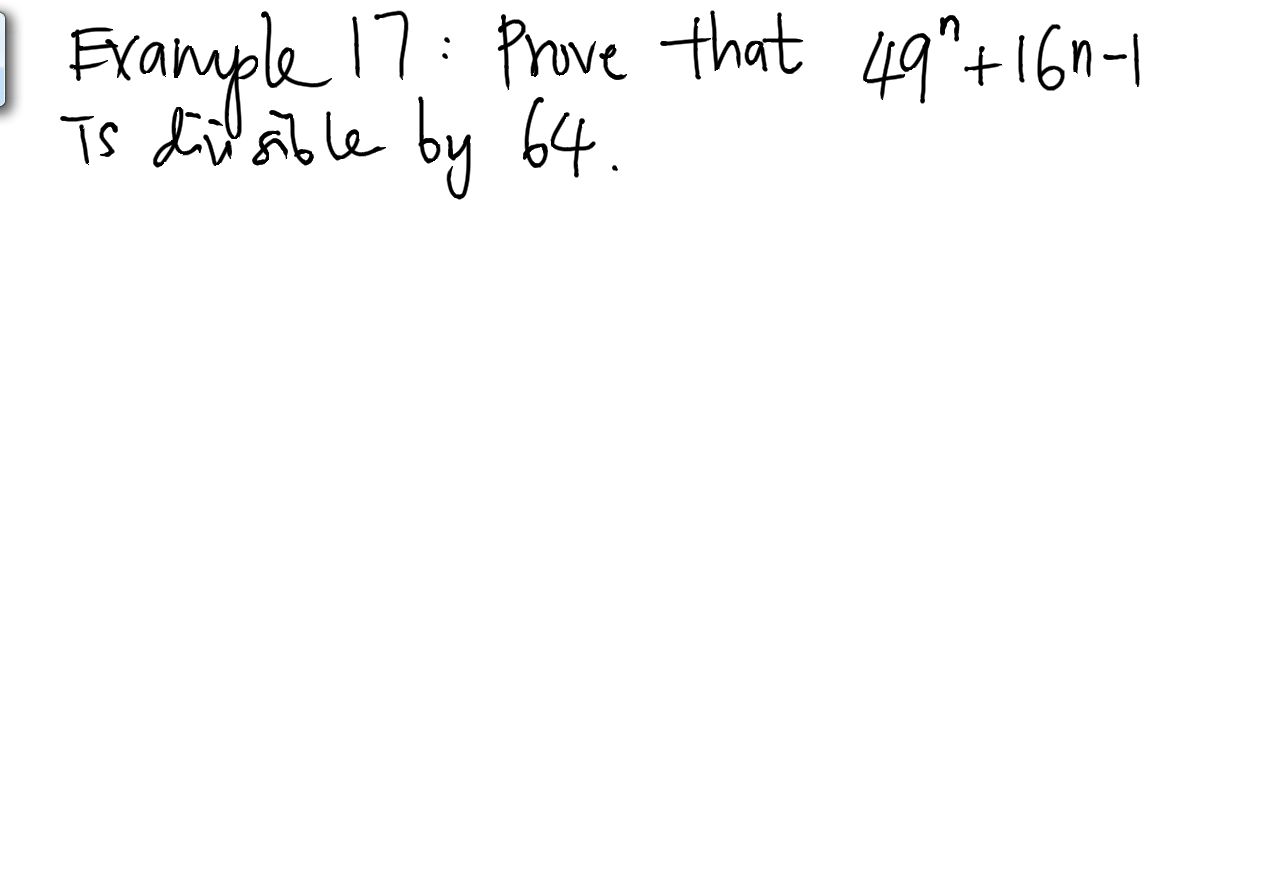 Example 17: Prove that 49ⁿ+16n-1
is divisible by 64.